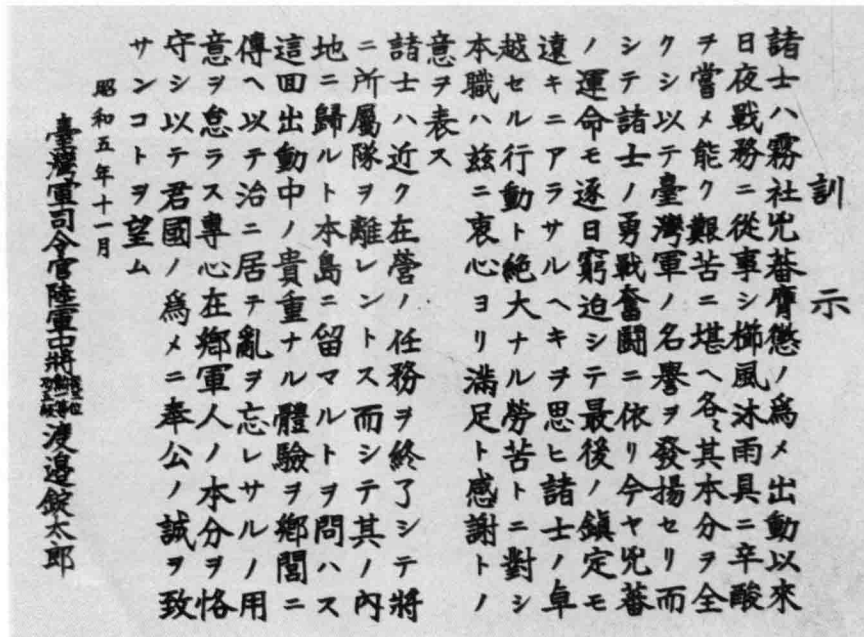 訓示
諸士ハ霧社兇蕃膺懲ノ為メ出動以來
日夜戰務ニ從事シ櫛風沐雨具ニ辛酸
ヲ嘗メ能ク艱苦ニ堪ヘ各〻其本分ヲ全
クシ以テ臺灣軍ノ名譽ヲ發揚セリ而
シテ諸士ノ勇戰奮闘ニ依リ今ヤ兇蕃
ノ運命モ逐日窮迫シテ最後ノ鎮定モ
遠キニアラサルヘキヲ思ヒ諸士ノ卓
越セル行動ト絶大ナル勞苦トニ對シ
本職ハ玆ニ衷心ヨリ滿足ト感謝トノ
意ヲ表ス
諸士ハ近ク在營ノ任務ヲ終了シテ將
ニ所屬隊ヲ離レントス而シテ其ノ內
地ニ歸ルト本島ニ留マルトヲ問ハス
這回出動中ノ貴重ナル體驗ヲ鄕閭ニ
傳ヘ以テ治ニ居テ亂ヲ忘レサルノ用
意ヲ怠ラス專心在鄕軍人ノ本分ヲ恪
守シ以テ君國ノ爲メニ奉公ノ誠ヲ致
サンコトヲ望ム
昭和五年十一月
臺灣軍司令官陸軍中將渡邊錠太郎